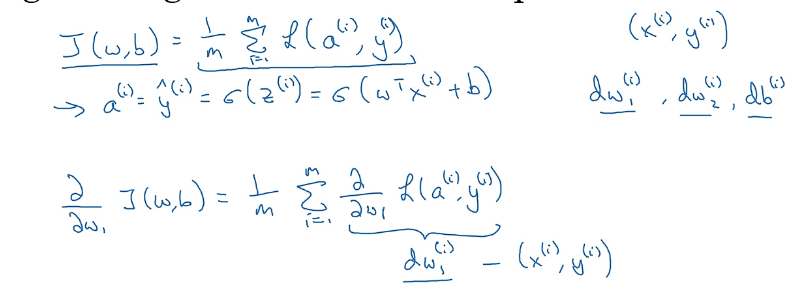 J(w,b) = 1/m Σ_{i=1}^{m} L(a^{(i)}, y^{(i)}) (x^{(i)}, y^{(i)})
→ a^{(i)} = ŷ^{(i)} = σ(z^{(i)}) = σ(w^T x^{(i)} + b) dw_1^{(i)}, dw_2^{(i)}, db^{(i)}
∂/∂w_1 J(w,b) = 1/m Σ_{i=1}^{m} ∂/∂w_1 L(a^{(i)}, y^{(i)})
dw_1^{(i)} – (x^{(i)}, y^{(i)})